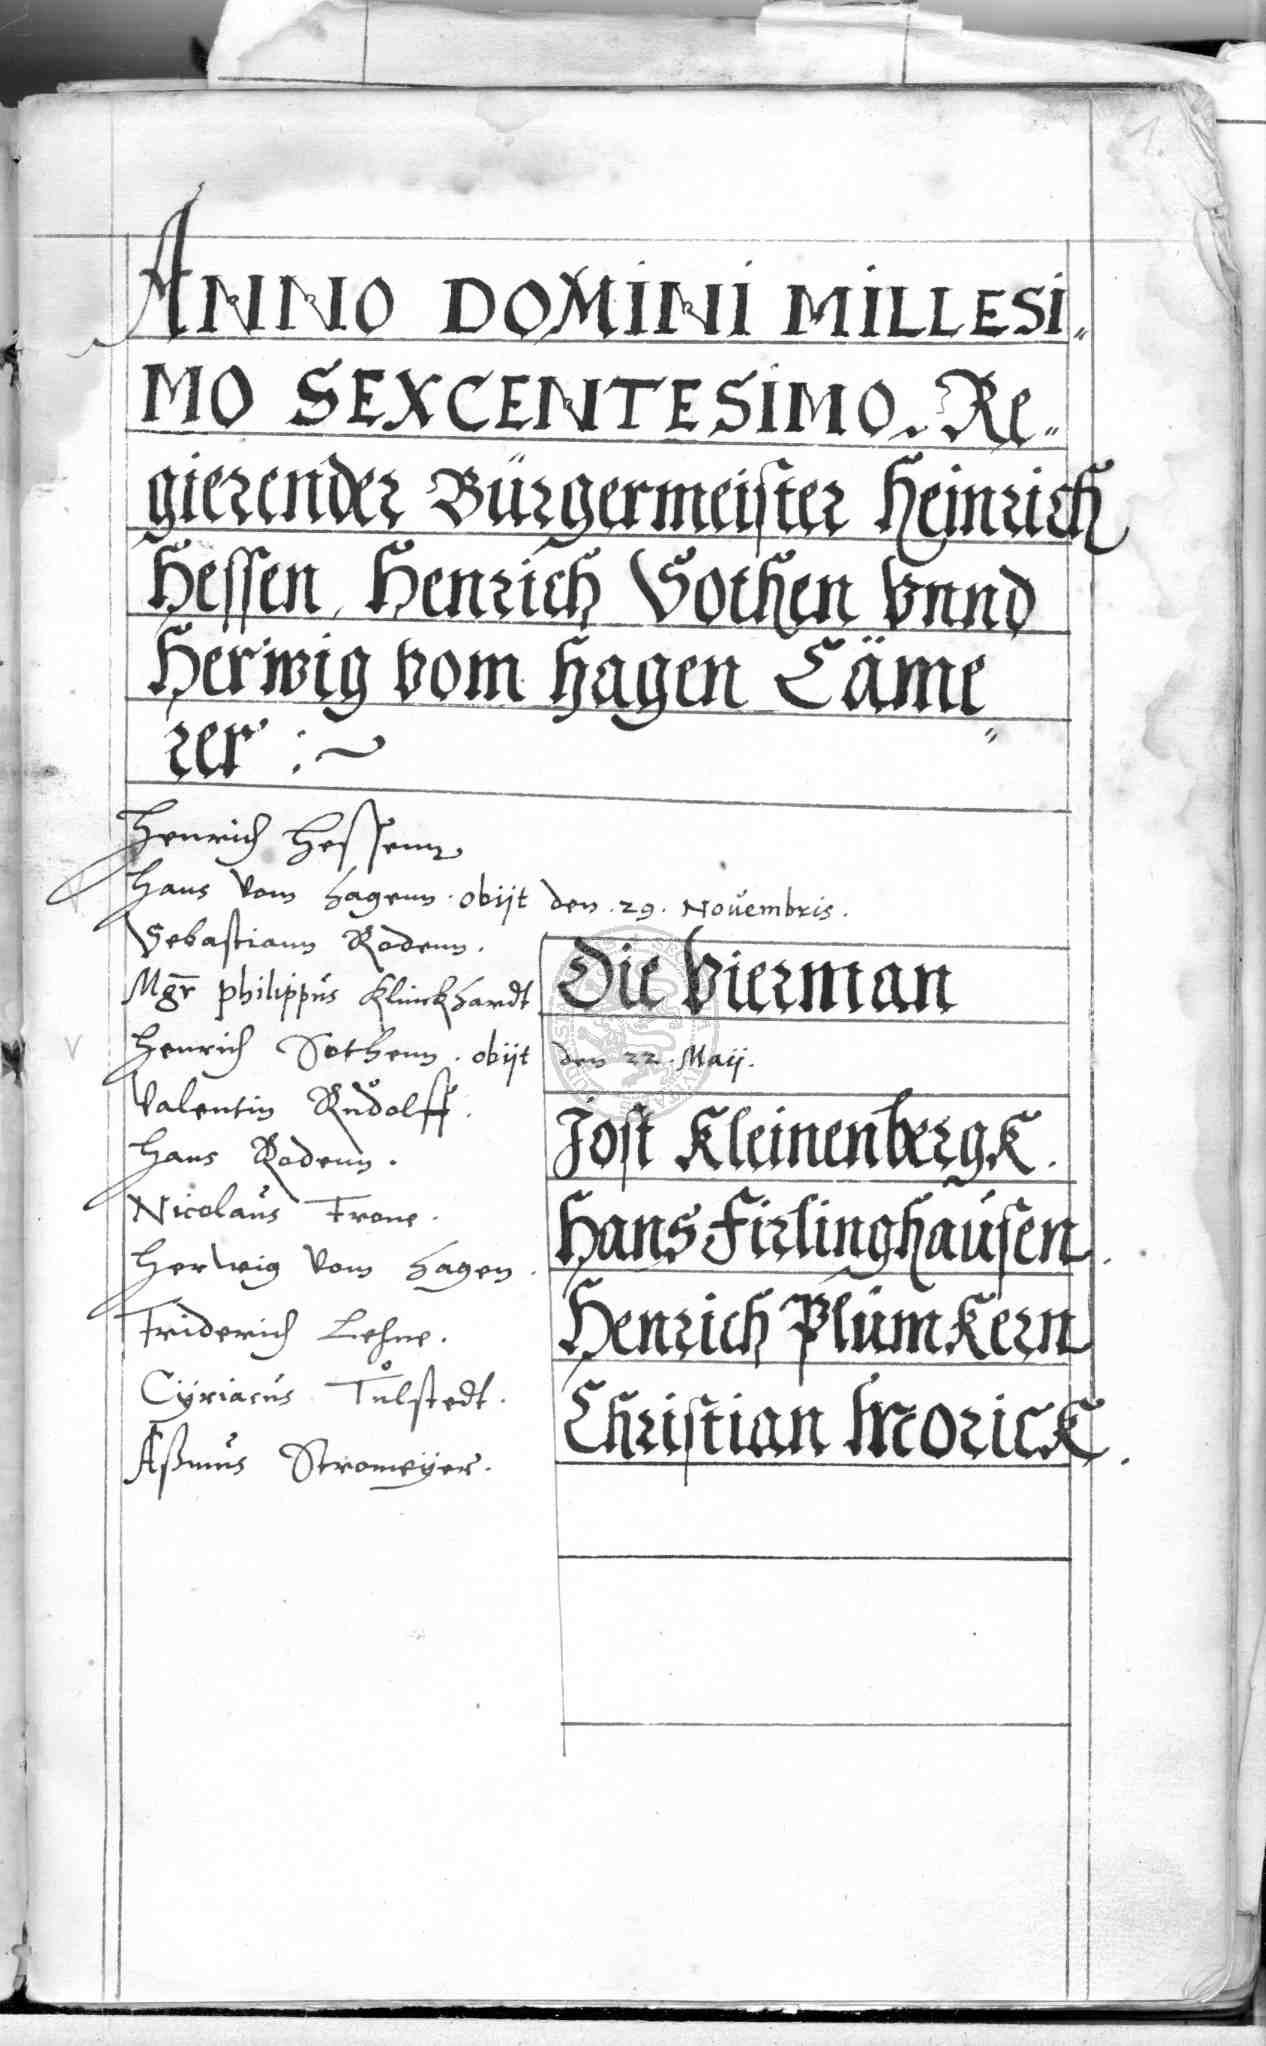 1.
ANNO DOMINI MILLESI„
MO SEXCENTESIMO. Re„
gierender Bürgermeister Heinrich
Hessen, Henrich Sothen vnnd
Herwig vom Hagen Cäme„
rer :~
Henrich Hessenn
Hans vom Hagenn. obijt den .29. Novembris.
Sebastiann Rodenn.
Mgr̄ philippus Klinckhardt
Henrich Sothenn. obijt den 22. Maij.
Valentin Rudolff.
Hans Rodenn.
Nicolaus Trone.
Herwig vom Hagen.
Friderich Lehne.
Cyriacus Tůlstedt.
Aßmus Stromeyer.
Die Vierman
Jost Kleinenbergk.
Hans Firlinghausen.
Henrich Plumkern
Christian Morick.